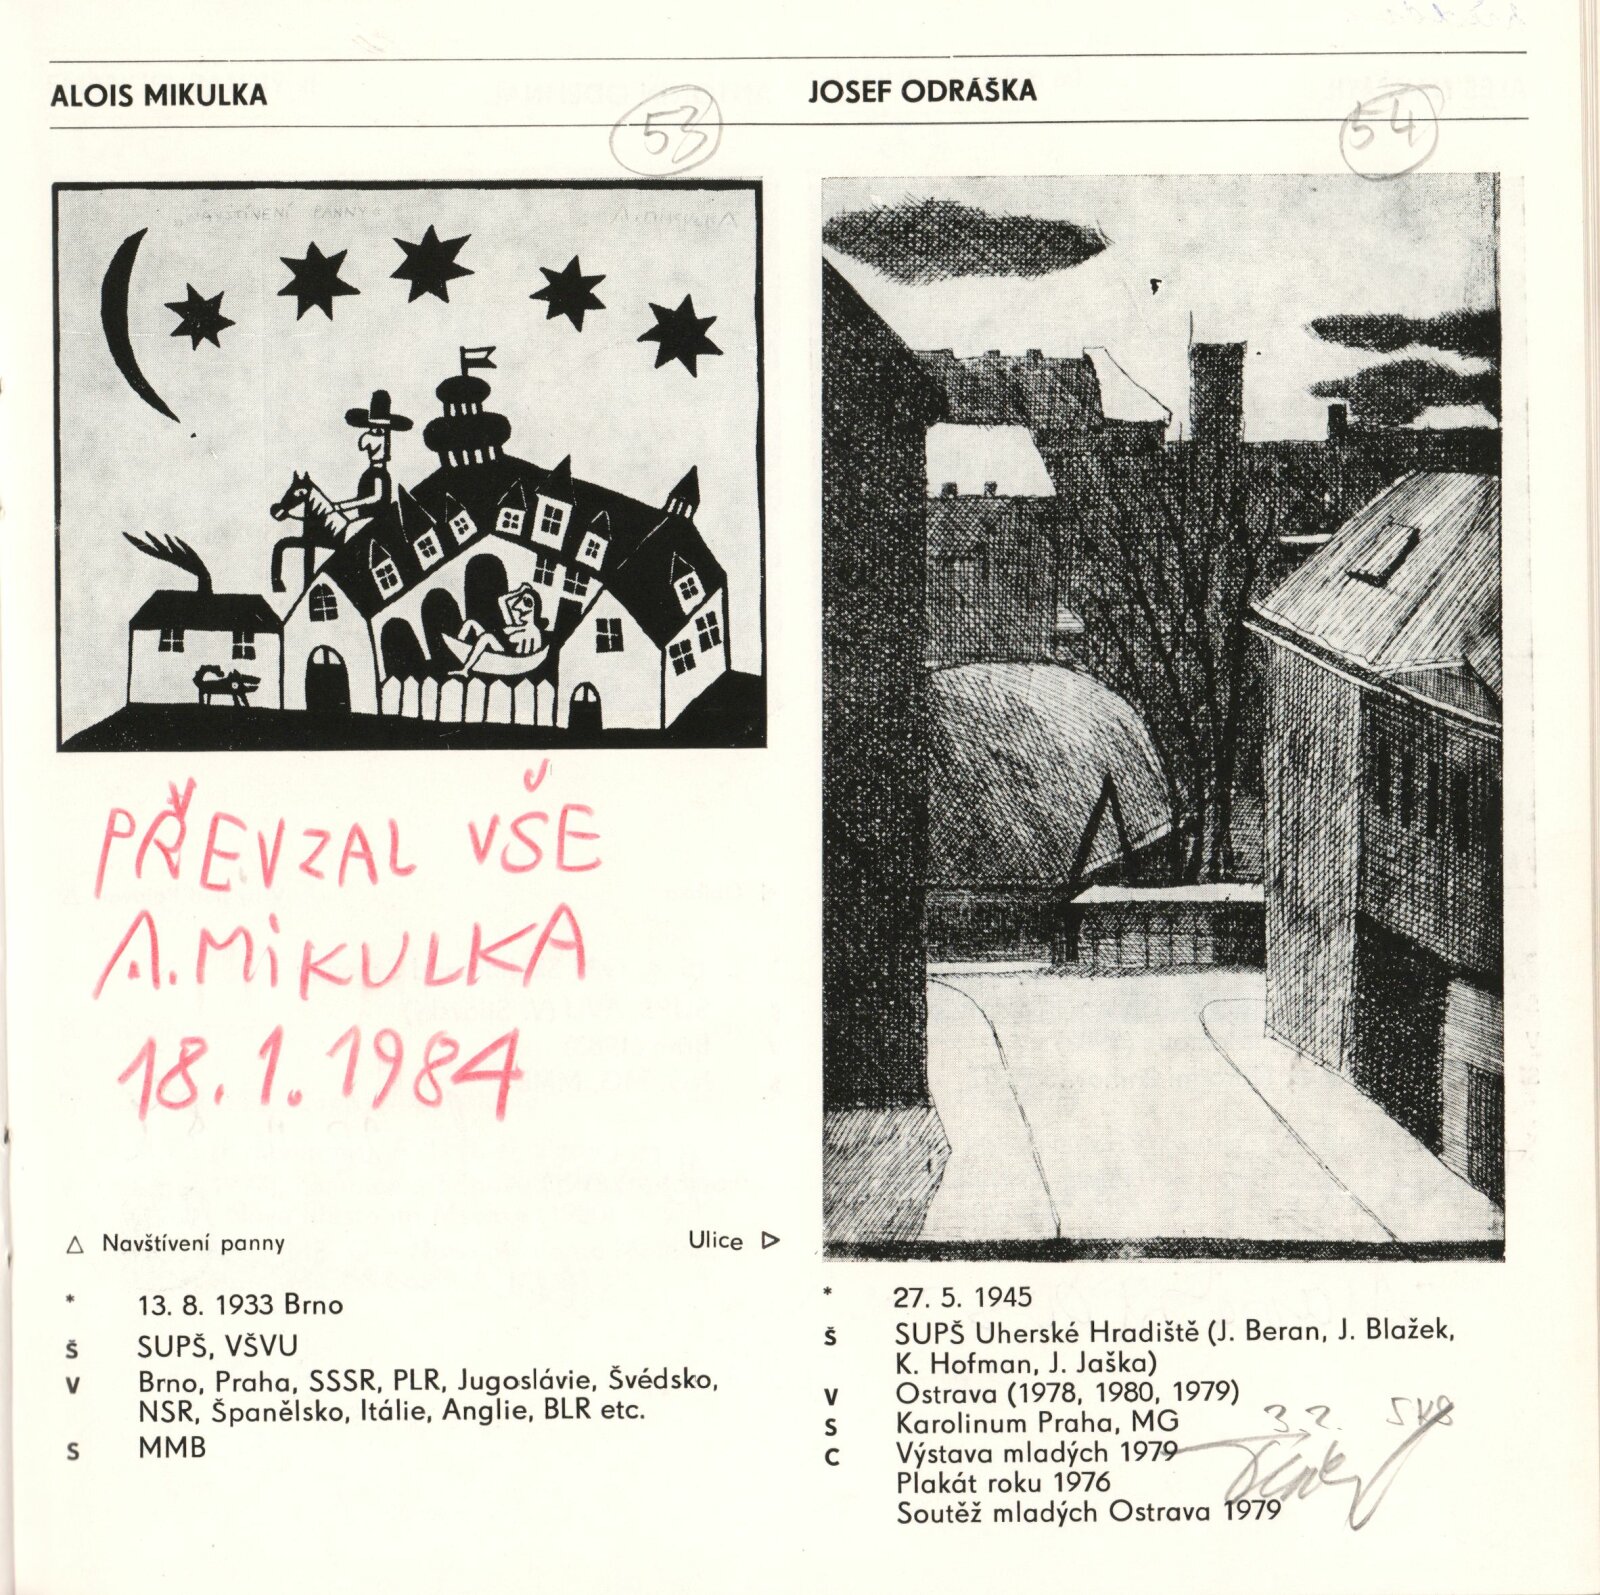 ALOIS MIKULKA
53
PŘEVZAL VŠE
A. MIKULKA
18. 1. 1984
△ Navštívení panny
* 13. 8. 1933 Brno
Š SUPŠ, VŠVU
V Brno, Praha, SSSR, PLR, Jugoslávie, Švédsko,
NSR, Španělsko, Itálie, Anglie, BLR etc.
S MMB
JOSEF ODRÁŠKA
54
Ulice ▷
* 27. 5. 1945
Š SUPŠ Uherské Hradiště (J. Beran, J. Blažek,
K. Hofman, J. Jaška)
V Ostrava (1978, 1980, 1979)
S Karolinum Praha, MG
C Výstava mladých 1979
Plakát roku 1976
Soutěž mladých Ostrava 1979
3. 2.